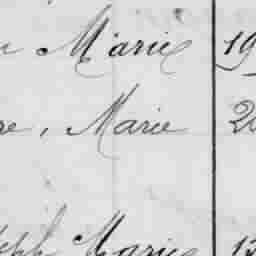 Marie 19
re, Marie 20
seph Marie 13